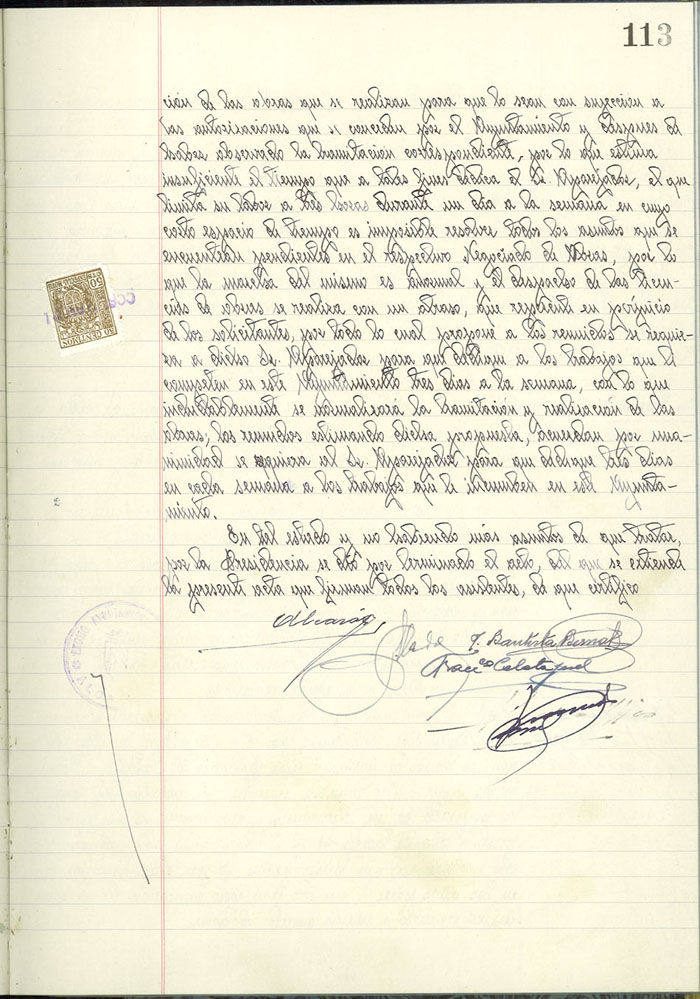 113
ción de las obras que se realizan para que lo sean con sujeccion a
las autorizaciones que se concedan por el Ayuntamiento y despues de
haber observado la tramitación correspondiente, por lo que estima
insuficiente el tiempo que a tales fines dedica el Sr. Aparejador, el que
limita su labor a tres horas durante un dia a la semana en cuyo
corto espacio de tiempo es imposible resolver todos los asuntos que se
encuentran pendientes en el respectivo Negociado de Obras, por lo
que la marcha del mismo es anormal y el despacho de las licen-
cias de obras se realiza con un atraso, que repercute en perjuicio
de los solicitantes, por todo lo cual propone a los reunidos se requie-
ra a dicho Sr. Aparejador para que dedique a los trabajos que le
competen en este Ayuntamiento tres dias a la semana, con lo que
indudablemente se normalizará la tramitación y realización de las
obras; los reunidos estimando dicha propuesta, acuerdan por una-
nimidad se requiera al Sr. Aparejador para que dedique tres dias
en cada semana a los trabajos que le incumben en este Ayunta-
miento.
En tal estado y no habiendo más asuntos de que tratar,
por la Presidencia se dió por terminado el acto, del que se extiende
la presente acta que firman todos los asistentes, de que certifico
Alvarez
J. Bautista Bernat
Franco Calatayud
50 CENTIMOS